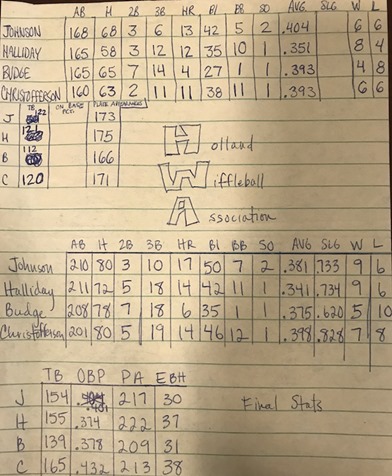 AB H 2B 3B HR BI BB SO AVG SLG W L
JOHNSON 168 68 3 6 13 42 5 2 .404 6 6
HALLIDAY 165 58 3 12 12 35 10 1 .351 8 4
BUDGE 165 65 7 14 4 27 1 1 .393 4 8
CHRISTOFFERSON 160 63 2 11 11 38 11 1 .393 6 6
TB ON BASE PCT. PLATE APPEARANCES
J 122 173
H 121 175
B 112 166
C 120 171
Holland
Wiffleball
Association
AB H 2B 3B HR BI BB SO AVG SLG W L
Johnson 210 80 3 10 17 50 7 2 .381 .733 9 6
Halliday 211 72 5 18 14 42 11 1 .341 .734 9 6
Budge 208 78 7 18 6 35 1 1 .375 .620 5 10
Christofferson 201 80 5 19 14 46 12 1 .398 .828 7 8
TB OBP PA EBH
J 154 .401 217 30
H 155 .374 222 37
B 139 .378 209 31
C 165 .432 213 38
Final Stats